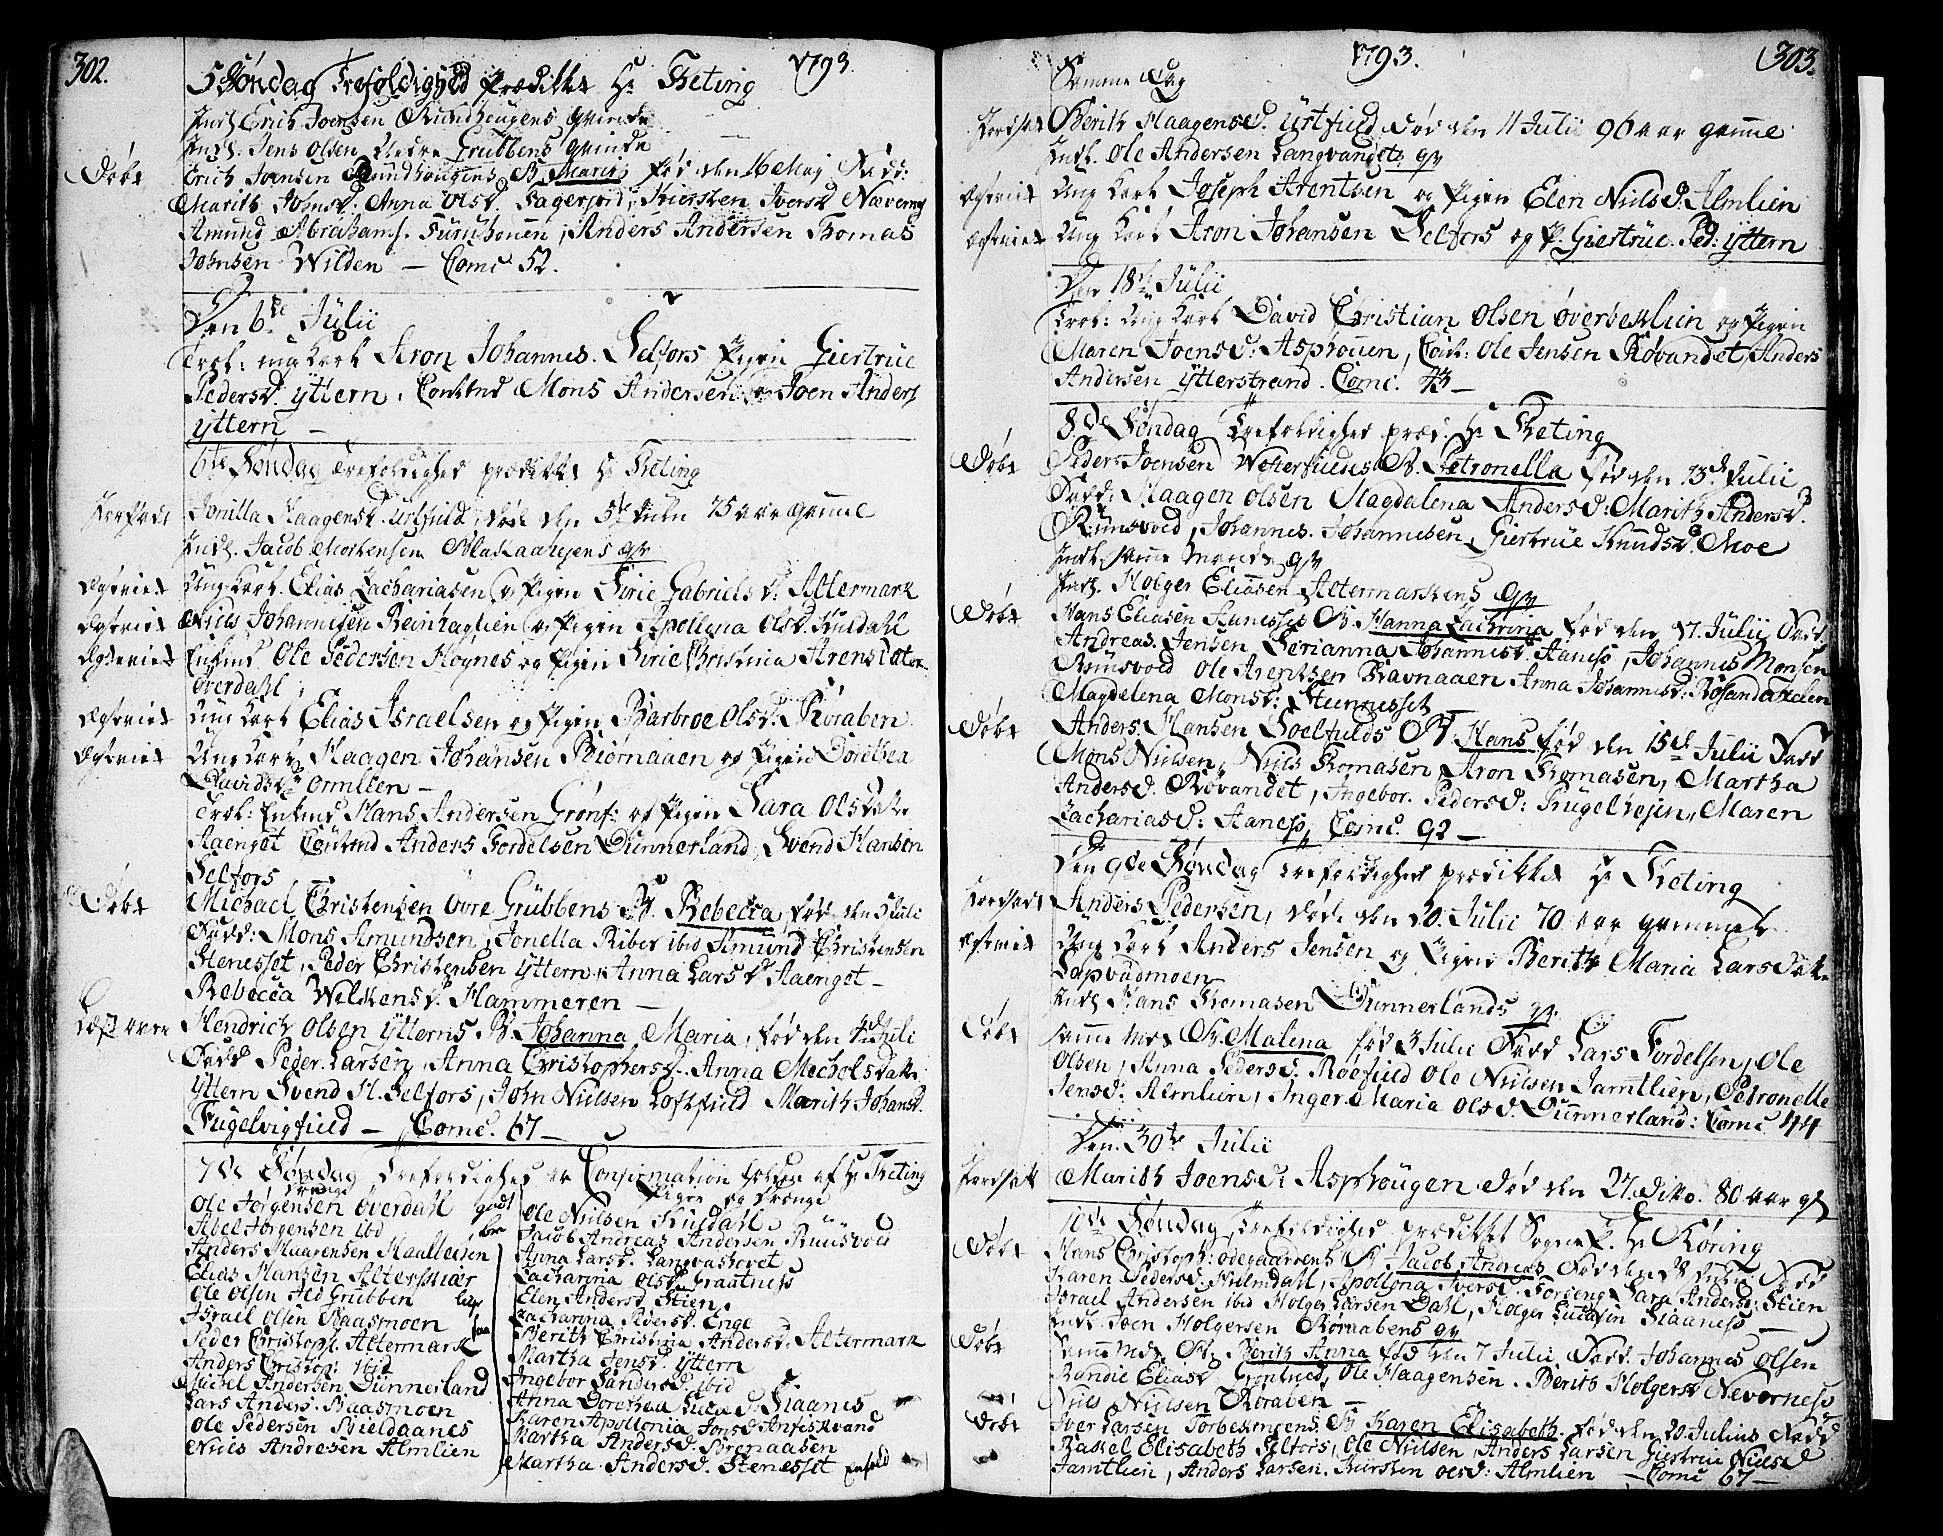 302.
1793.
5 Søndag Trefoldighed Prædikke Hr Kieting
Indl. Erich Joensen Rundhougens qvinde
Indl. Jens Olsen Nedre Grubbens qvinde
Døbt
Erich Joensen Rundhougens B. Marit, fød den 16 May Fadd:
Marith Johnsd. Anna Olsd. Fagerjord, Kiersten Iversd Næverng
Amund Abrahams. Furuhouen, Anders Andersen Thomas
Johnsen Wilden — Comc 52.
Den 6te Julii
Trol: ung Karl Aron Johannes. Selfors Pigen Giertrue
Pedersd. Yttern. Contend Mons Andersen og Joen Anders
Yttern —
6te Søndag Trefoldighed prædikke Hr Kieting
Jordfæst
Jonilla Haagensd. Urtfield, døde den 5te Julii 75 aar gamle
Indl. Jacob Mortensen Blakaahejens qv
Egteviet
Ung Karl Elias Zachariasen og Pigen Sirie Gabriels D: Altermark
Egteviet
Niels Johannesen Reinhaglien og Pigen Apollona Olsd. Kuldahl
Egteviet
Enkmd Ole Pedersen Høgnes og Pigen Sirie Christina Arensdater
Overdahl
Egteviet
Ung Karl Elias Israelsen og Pigen Barbroe Olsd: Røraben
Egteviet
Ung Karl Haagen Johansen Biørnaaen og Pigen Dorthea
Davidsd. Ormlien —
Trol: Enkmd Hans Andersen Grønf: og Pigen Sara Olsdater
Aaenget Contend Anders Fordelsen Dunnerland, Svend Hansen
Selfors
Døbt
Michael Christensen Øvre Grubbens B. Rebecca fød den 5 Juli
Fadd: Mons Amundsen, Jonella Riber ibid Amund Christensen
Stenesset, Peder Christensen Yttern, Anna Lars D Aaenget —
Rebecca Wilkensd. Hammeren —
Læst over
Hendrich Olsen Ytterns B. Johanna Maria, fød den 4d Juli
Fadd Peder Larsen, Anna Christophersd. Anna Michelsdater
Yttern Svend H. Selfors, John Nielsen Loftfield Marith Johansd.
Fugelvigfield — Comc. 67 —
7de Søndag Trefoldighed er Confirmation holden af Hr Kieting
Drenge
Ole Jørgensen Overdahl godt
Abel Jørgensen ibid
Anders Haagensen Haallien
Elias Hansen Altersnær
Ole Olsen Ned Grubben
Israel Olsen Baasmoen
Peder Christoph. Altermark
Anders Christoph: ibid
Michel Andersen Dunnerland
Lars Anders. Baasmoen
Ole Pedersen Bieldaanes
Niels Andresen Almlien
Piger og Drenge
Ole Nielsen Kuldahl
Jacob Andreas Andersen Ruusvold
Anna Larsd. Langvashovet
Zacharina Olsd. Grautness
Elen Andersd Stien
Zacharina Pedersd. Enge
Berith Christina Andersd. Altermark
Martha Jensd. Yttern
Ingebor Sandersd. ibid
Anna Dorothea Luca D. Siaanes
Karen Apollonia Jonsd Anfiskvand
Martha Andersd. Brenaasen
Martha Andersd. Stenesset
1793.
303.
Samme Dag
Jordfæst
Berith Haagensd. Urtfield død den 11 Julii 96 aar gamle
Indl. Ole Andersen Langvandets qv
Egteviet
Ung Karl Joseph Arentsen og Pigen Elen Niels D. Almlien
Egteviet
Ung Karl Aron Johansen Selfors og P. Giertrue. Ped: Yttern
Den 18de Julii
Trol: Ung Karl David Christian Olsen Øverseklien og Pigen
Maren Joens D: Asphouen, Cont: Ole Jensen Røvandet, Anders
Andersen Ytterstrand. Comc. 43 —
8de Søndag Trefoldighed præd. Hr Kieting
Døbt
Peder Joensen Westerfields B. Petronella fød den 13de Julii
Fadd: Haagen Olsen Magdalena Anders D: Marith Andersd.
Ruusvold, Johannes. Johannesen, Giertrue Knudsd. Moe
Indl. samme mands qv
Indl. Holger Eliasen Altermarkens qv
Døbt
Hans Eliasen Aanesses B. Hanna Zachrina fød den 17 Julii Fadd
Andreas. Jensen Serianna Johannesd. Aaness, Johannes Monsen
Ruusvold Ole Arentsen Ravnaaen Anna Johannesd: Rosandaxelen
Magdelena Monsd: Stennesset
Døbt
Anders Hansen Soelfields B Hans fød den 15de Julii Fadd
Mons Nielsen, Niels Thomasen, Aron Thomasen, Martha
Andersd. Røvandet, Ingebor. Pedersd: Fugelhejen, Maren
Zacharias D: Aaness, Comc. 92 —
Den 9de Søndag Trefoldighed prædikke Hr Kieting
Jordfæst
Anders Pedersen, døde den 20. Julii 70 aar gammel
Egteviet
Ung Karl Anders Jensen og Pigen Berith Maria Larsdat.
Lapvadmoen
Indl Hans Thomasen Dunnerlands qv.
Døbt
samme mds B. Malena fød 3 Julii Fadd Lars Fordelsen, Ole
Olsen, Anna Pedersd. Roefield Ole Nielsen Jamtlien, Petronelle
Jensd: Almlien, Inger Maria Olsd. Dunnerland: Comc 44
Den 30te Julii
Jordfæst
Marith Joens D. Asphougen død den 27. dito. 80 aar gl
10de Søndag Trefoldighed prædikket Sogne P. Hr Køring
Døbt
Hans Christoph: Ødegaardens B Jacob Andreas fød den 28 Julii Fadd
Karen Pedersd. Hielmdahl, Apollona Iversd. Forseng, Sara Andersd: Stien
Israel Andersen ibid Holger Larsen Dahl, Holger Lucasin Siaaness —
Indl Joen Holgersen Røraabens qv
Døbt
samme mds B. Berith Anna fød den 7 Julii. Fadd. Johannes Olsen
Randie Eliasd Grønfield, Ole Haagensen. Berith Holgersd Neverness
Niels Nielsen Røraben —
Døbt
Iver Larsen Forbekengens B Karen Elisabeth fød den 20 Julius Fadd
Rakel Elisabeth Selfors, Ole Nielsen, Anders Larsen Giertrue Nielsd
Jamtlien, Anders Larsen. Kiersten Olsd: Almlien — Comc 67 —